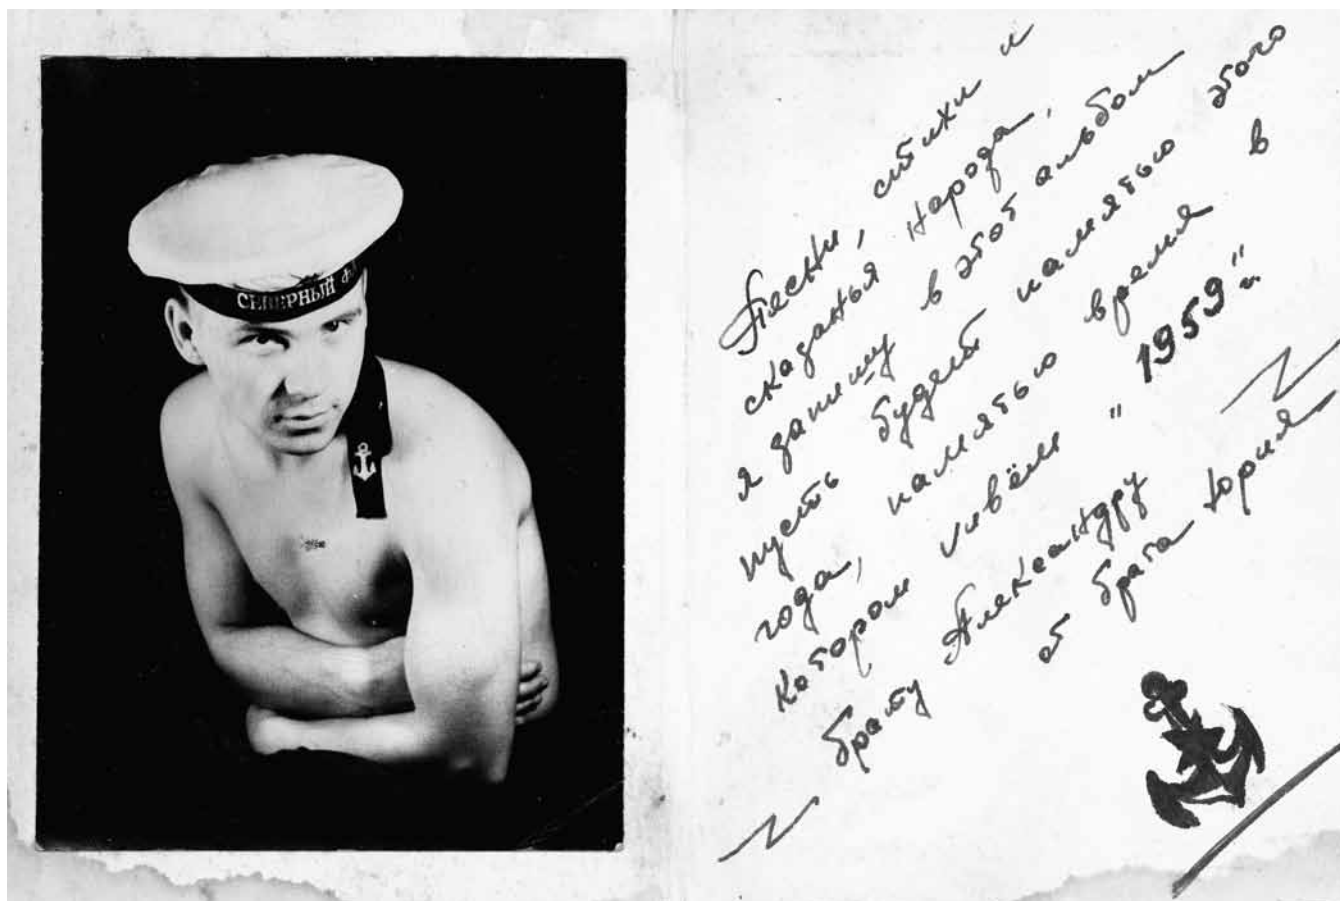 СЕВЕРНЫЙ
Песни, стихи и
сказанья народа,
я запишу в этот альбом
пусть будет памятью этого
года, памятью время в
котором живём "1959" г.
брату Александру
от брата Юрия